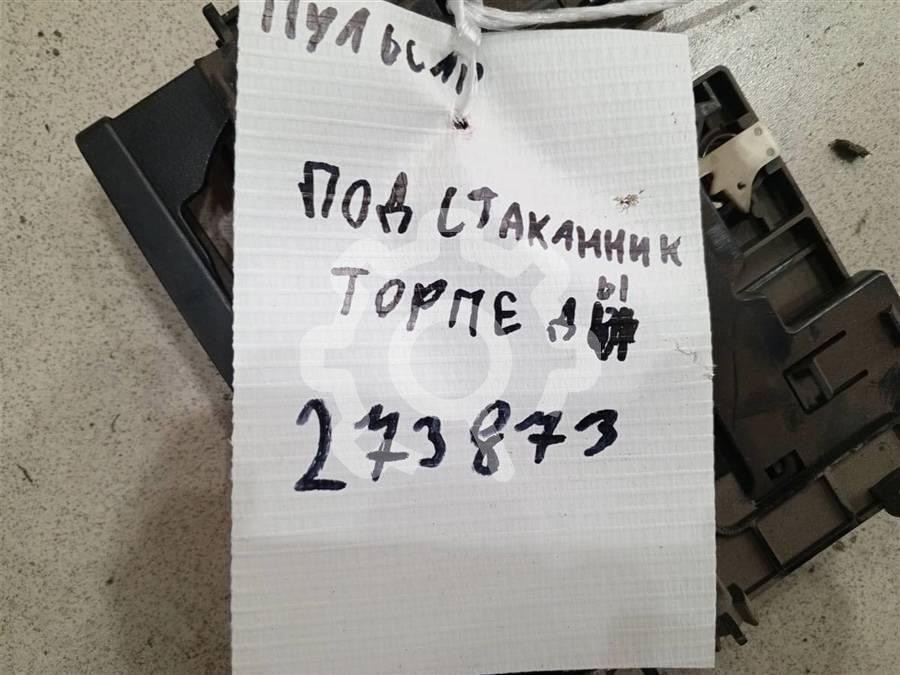 ПУЛЬСАР
ПОД СТАКАННИК
ТОРПЕДЫ
273873